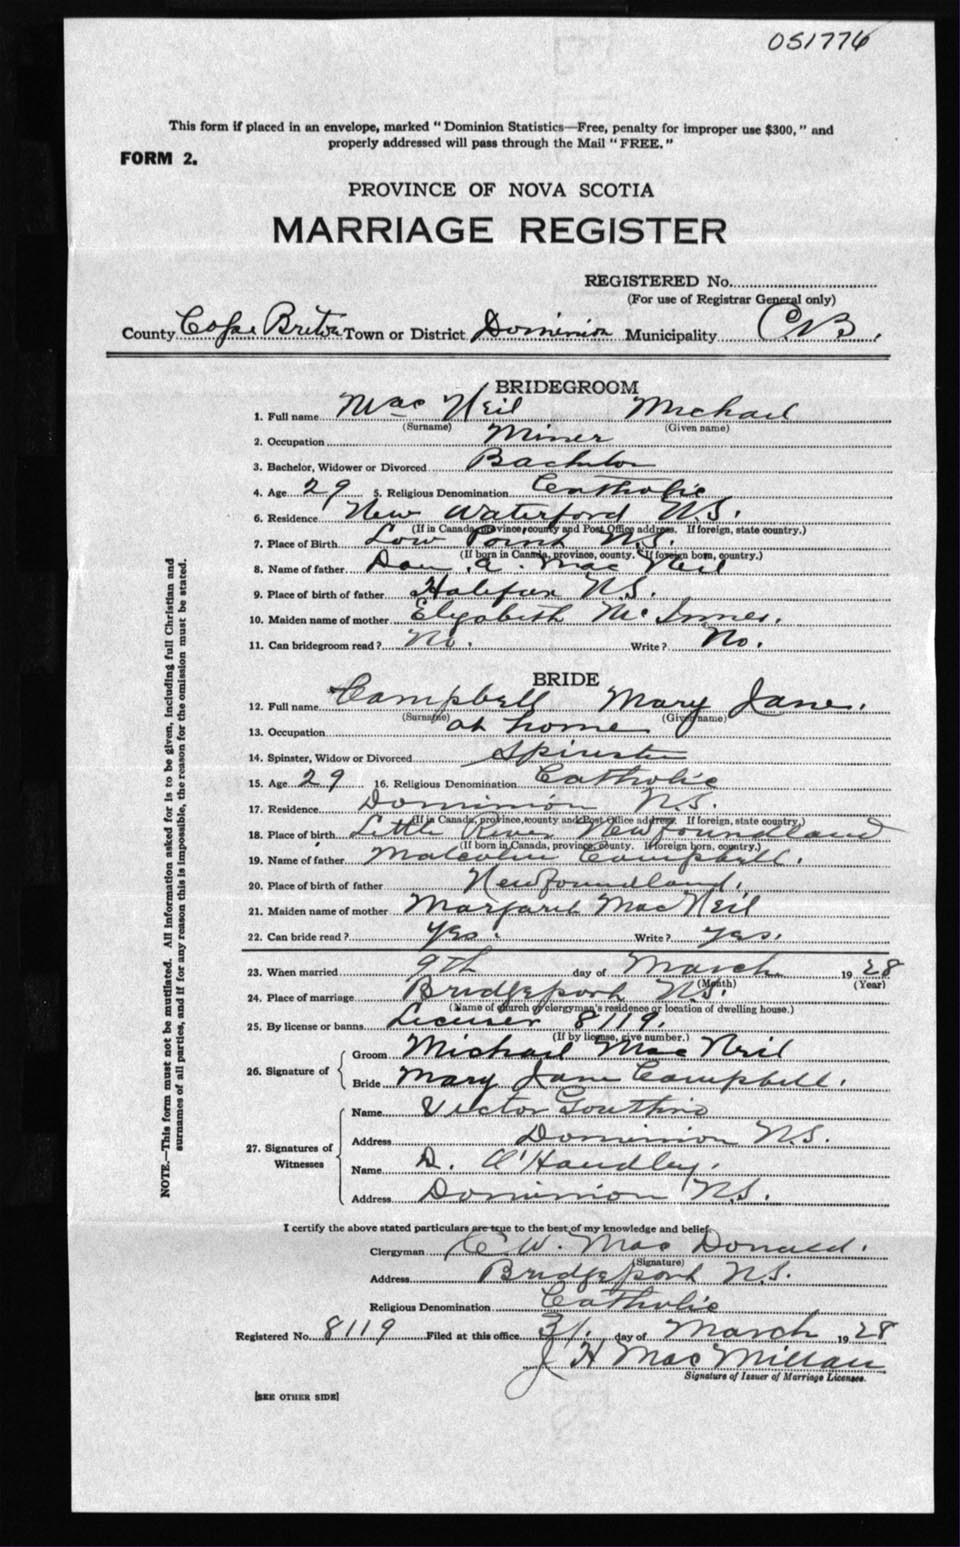 051776
This form if placed in an envelope, marked "Dominion Statistics—Free, penalty for improper use $300," and
properly addressed will pass through the Mail "FREE."
FORM 2.
PROVINCE OF NOVA SCOTIA
MARRIAGE REGISTER
REGISTERED No.
(For use of Registrar General only)
County Cape Breton Town or District Dominion Municipality C.B.
BRIDEGROOM
1. Full name Mac Neil Michael
(Surname) (Given name)
2. Occupation Miner
3. Bachelor, Widower or Divorced Bachelor
4. Age 29 5. Religious Denomination Catholic
6. Residence New Waterford N.S.
(If in Canada, province, county and Post Office address. If foreign, state country.)
7. Place of Birth Low Point N.S.
(If born in Canada, province, county. If foreign born, country.)
8. Name of father Dan. A. Mac Neil
9. Place of birth of father Halifax N.S.
10. Maiden name of mother Elyabeth Mc Innes.
11. Can bridegroom read? No. Write? No.
BRIDE
12. Full name Campbell Mary Jane.
(Surname) (Given name)
13. Occupation at home
14. Spinster, Widow or Divorced Spinster
15. Age 29 16. Religious Denomination Catholic
17. Residence Dominion N.S.
(If in Canada, province, county and Post Office address. If foreign, state country.)
18. Place of birth Little River Newfoundland
(If born in Canada, province, county. If foreign born, country.)
19. Name of father Malcolm Campbell.
20. Place of birth of father Newfoundland.
21. Maiden name of mother Margaret MacNeil
22. Can bride read? Yes. Write? Yes.
23. When married 9th day of March 1928
(Month) (Year)
24. Place of marriage Bridgeport N.S.
(Name of church or clergyman's residence or location of dwelling house.)
25. By license or banns License 8119.
(If by license, give number.)
26. Signature of Groom Michael Mac Neil
Bride Mary Jane Campbell.
27. Signatures of Witnesses
Name Victor
Address Dominion N.S.
Name D. O'Handley.
Address Dominion N.S.
I certify the above stated particulars are true to the best of my knowledge and belief.
Clergyman C. W. Mac Donald.
(Signature)
Address Bridgeport N.S.
Religious Denomination Catholic
Registered No. 8119 Filed at this office 31. day of March 1928
J H MacMillan
Signature of Issuer of Marriage Licenses.
[SEE OTHER SIDE]
NOTE.—This form must not be mutilated. All information asked for is to be given, including full Christian and
surnames of all parties, and if for any reason this is impossible, the reason for the omission must be stated.